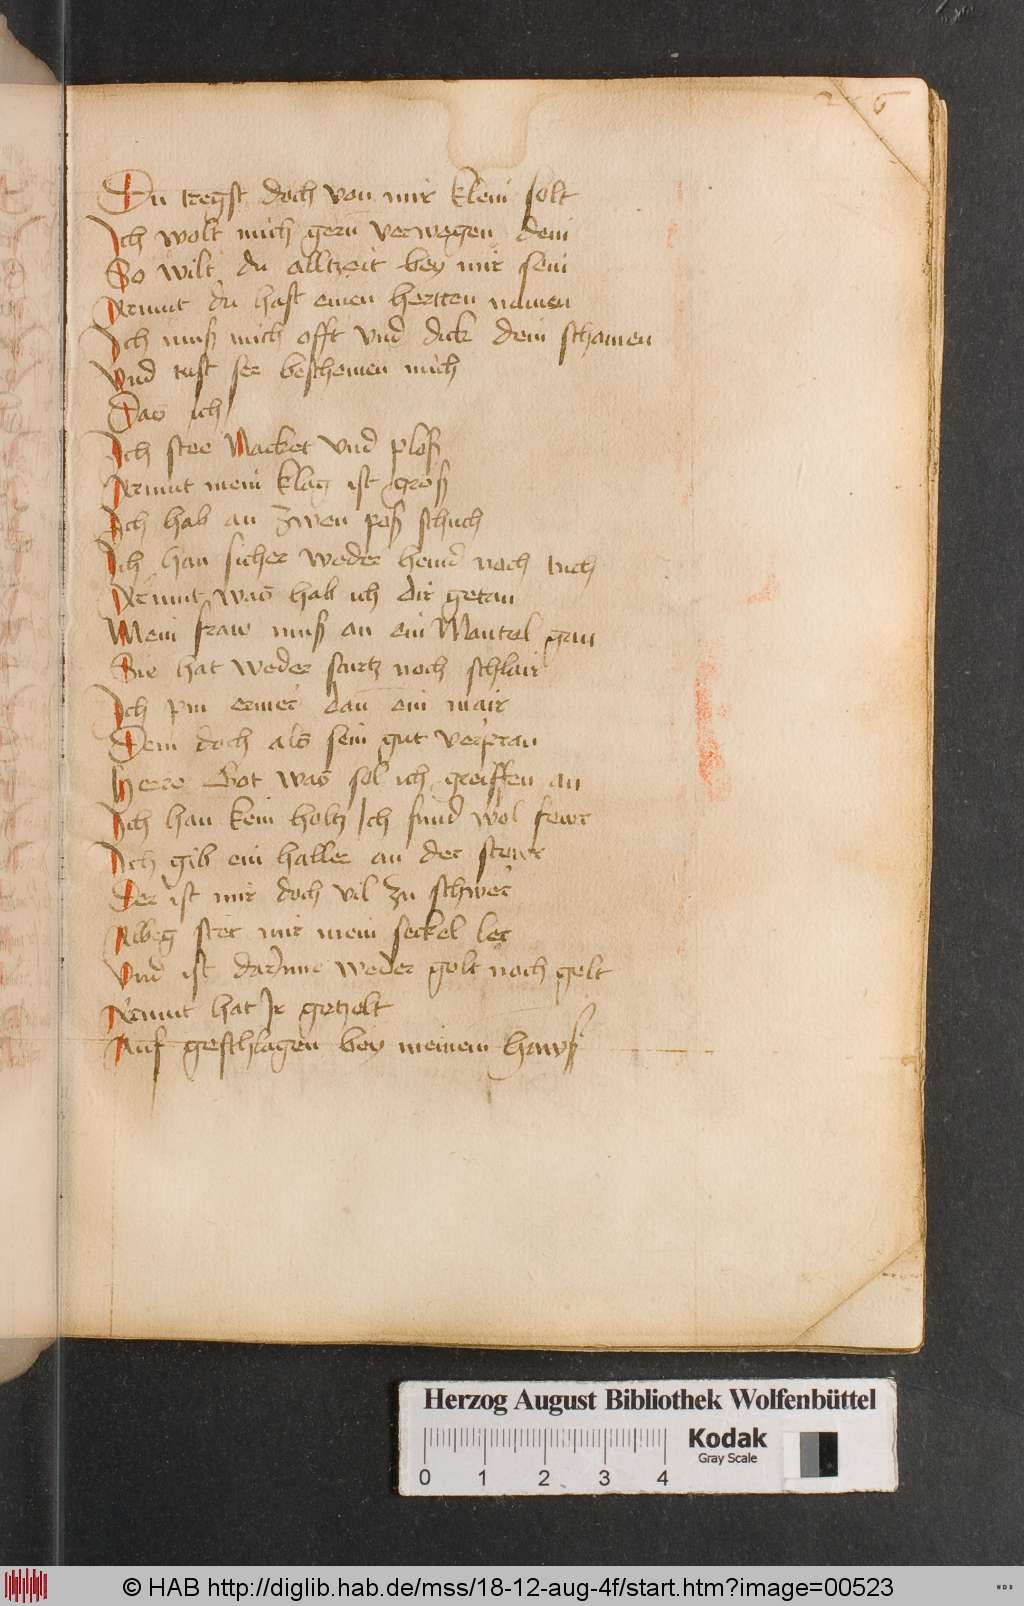 Du tregst doch von mir klein solt
Ich wolt mich gern verwegen dein
So wilt du alltzeit bey mir sein
Armut du hast einen hertten namen
Ich muß mich offt vnd dick dein schamen
Vnd tust ser beschemen mich
Das ich
Ich stee Nacket vnd ploß
Armut mein klag ist groß
Ich hab an zwen poß schuch
Ich han sicher weder hemd noch tuch
Armut was hab ich dir getan
Mein fraw muß an ein Mantel gan
Sie hat weder sturtz noch schlair
Ich pin ermer dan ein mair
Dem doch als sein gut verpran
Herre Got was sol ich greiffen an
Ich han kein holtz Ich fund wol fewr
Ich gib ein haller an der stewr
Der ist mir doch vil zu schwer
Alweg stet mir mein seckel ler
Vnd ist darinne weder golt noch gelt
Armut hat Ir getzelt
Auf geschlagen bey meinem hawß
Herzog August Bibliothek Wolfenbüttel
Kodak
Gray Scale
0 1 2 3 4
© HAB http://diglib.hab.de/mss/18-12-aug-4f/start.htm?image=00523